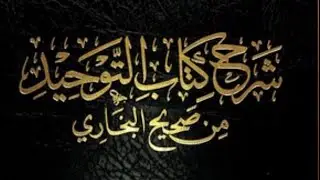 شَرْحُ كِتَابِ التَّوْحِيدِ
مِنْ صَحِيحِ البُخَارِي